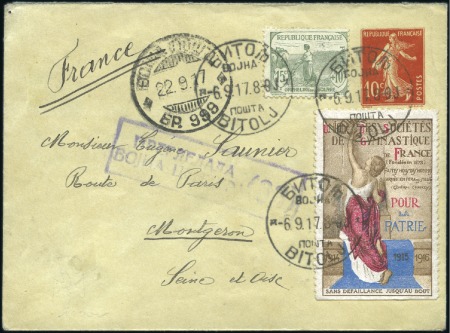 France
22.9.17
БР. 999
БИТОЉ
ВОЈНА
-6.9.17.8-
ПОШТА
BITOLJ
REPUBLIQUE FRANÇAISE
15
БИТОЉ
ВОЈНА
-6.9.17.8-
ПОШТА
BITOLJ
REPUBLIQUE FRANÇAISE
10c
POSTES
Monsieur Eugene Saunier
Route de Paris
Montgeron
Seine et Oise
UNION DES SOCIÉTÉS
DE GYMNASTIQUE
DE FRANCE
POUR
LA
PATRIE
1915 1916
SANS DEFAILLANCE JUSQU'AU BOUT
БИТОЉ
ВОЈНА
-6.9.17.8-
ПОШТА
BITOLJ